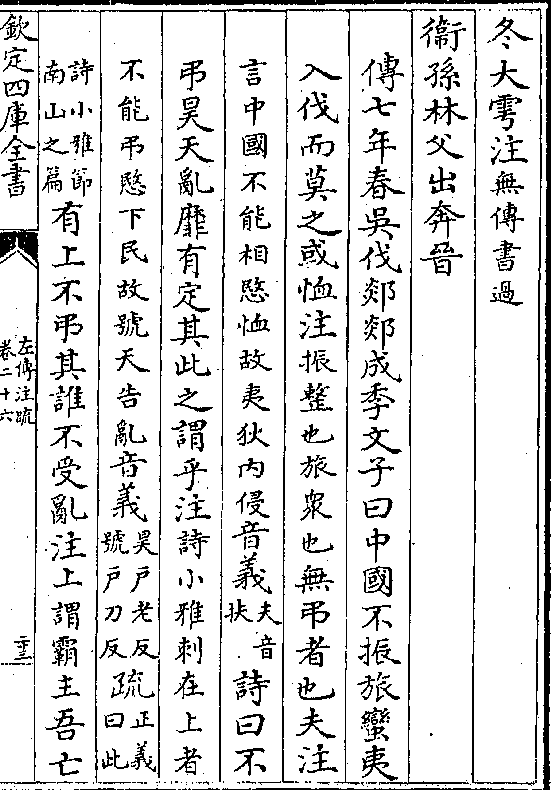 冬大雩注無傳書過
衞孫林父出奔晉
傳七年春吳伐郯郯成季文子曰中國不振旅蠻夷
入伐而莫之或恤注振整也旅衆也無弔者也夫注
言中國不能相愍恤故夷狄內侵音義夫音扶詩曰不
弔昊天亂靡有定其此之謂乎注詩小雅刺在上者
不能弔愍下民故號天告亂音義昊戶老反號戶刀反疏正義曰此
詩小雅節南山之篇有上不弔其誰不受亂注上謂霸主吾亡
欽定四庫全書
左傳注疏
卷二十六
二十三